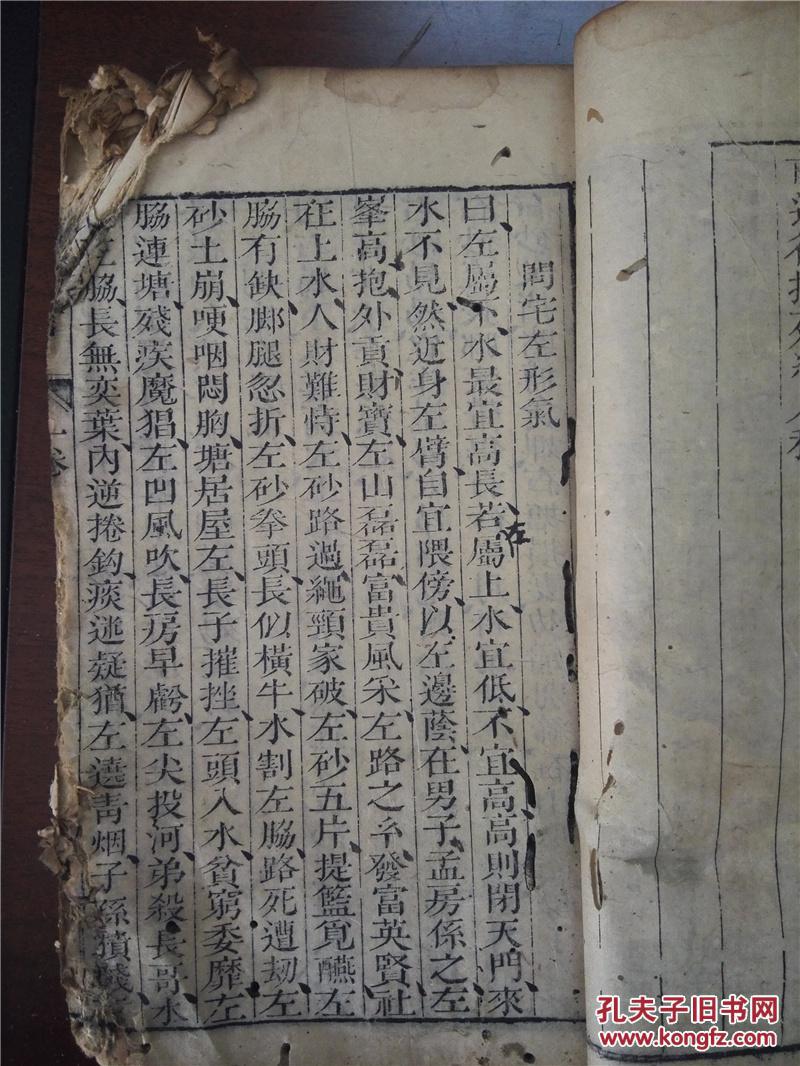 問宅左形氣
曰左屬下水最宜高長若屬上水宜低不宜高高則閉天門來
在
水不見然近身左臂自宜隈傍以左邊蔭在男子孟房係之左
峯高抱外貢財寶左山磊磊富貴風采左路之糸發富英賢社
在上水人財難恃左砂路過繩頸家破左砂五片提籃覓醼左
脇有缺脚腿忽折左砂拳頭長似橫牛水割左脇路死遭刼左
砂土崩哽咽悶胸塘居屋左長子摧挫左頭入水貧窮委靡左
脇連塘殘疾魔猖左凹風吹長房早虧左尖投河弟殺長哥水
左脇長無奕葉內逆捲鈎痰迷疑猶左遶青烟子孫
孔夫子旧书网
www.kongfz.com